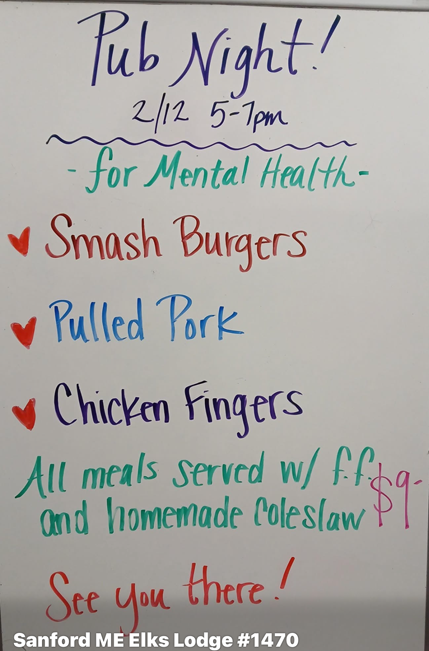 Pub Night!
2/12 5-7pm
- for Mental Health -
Smash Burgers
Pulled Pork
Chicken Fingers
All meals served w/ f.f.
and homemade coleslaw $9-
See you there!
Sanford ME Elks Lodge #1470